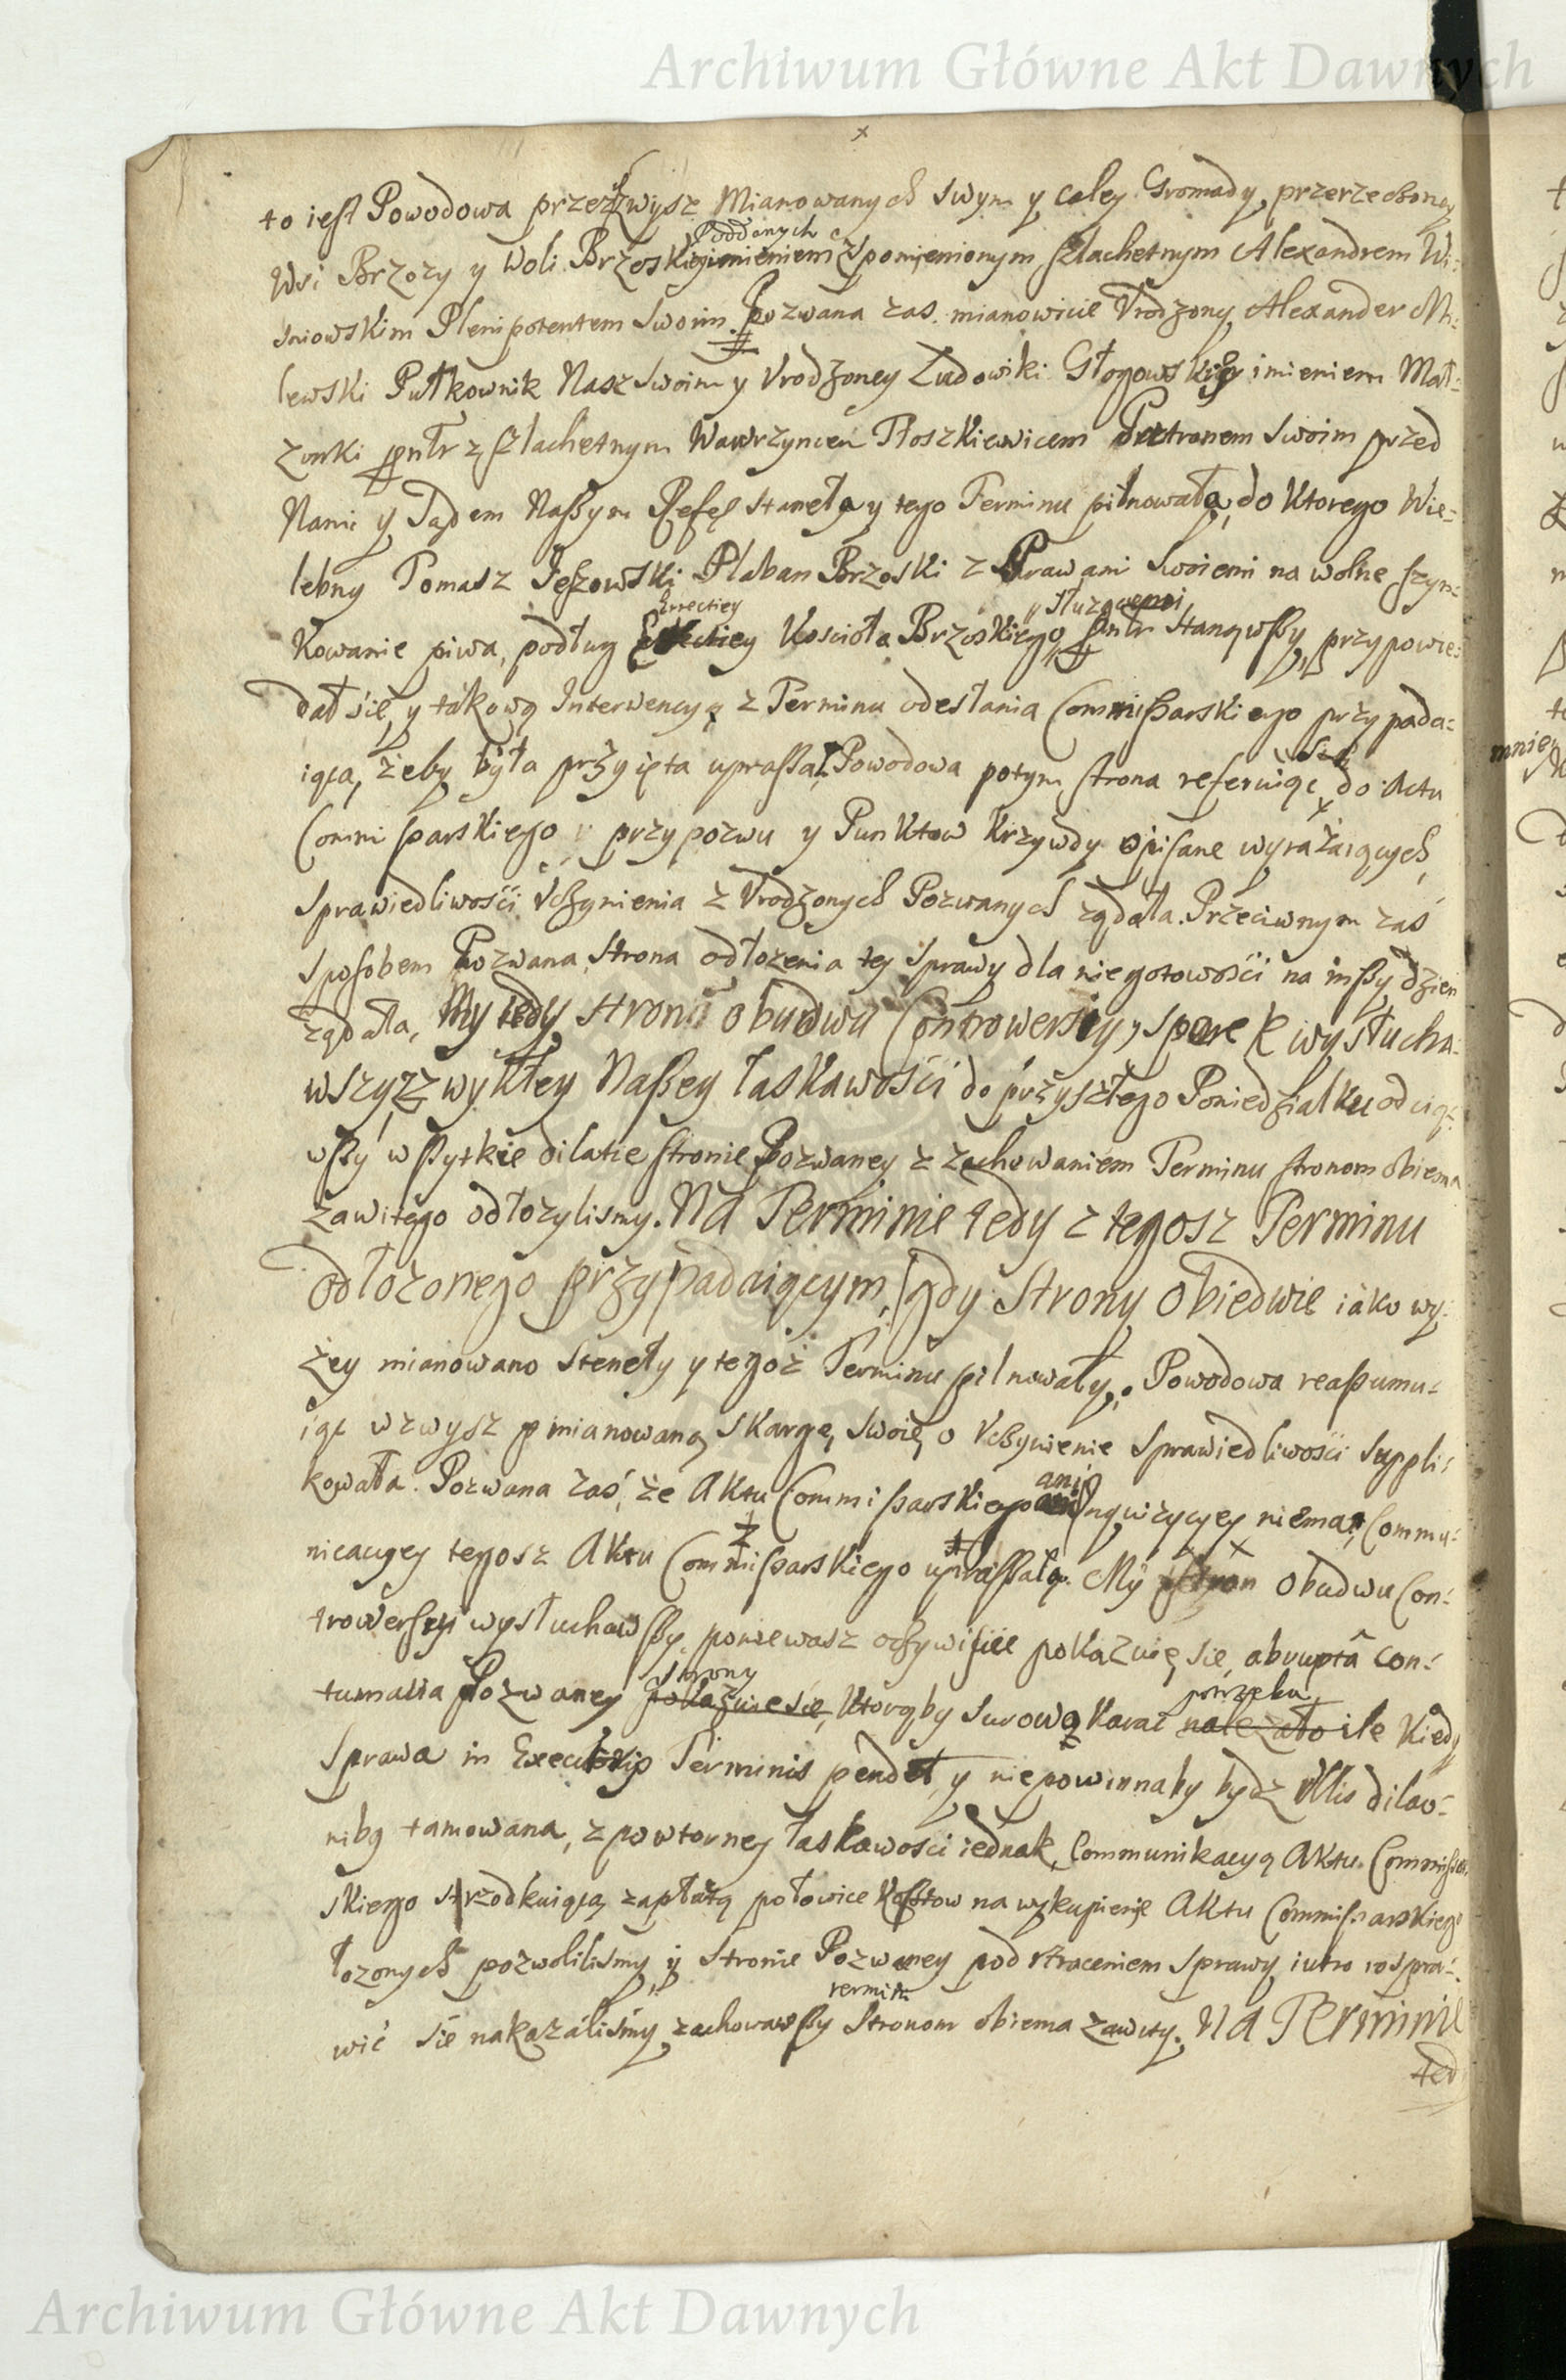 Archiwum Główne Akt Dawnych
to iest Powodowa przez zwysz Mianowanych swym y całey Gromady przerzeczoney
Poddanych
Wsi Brzozy y Woli Brzoskiey imieniem z spomienionym szlachetnym Alexandrem Wi-
sniowskim Plenipotentem swoim. Pozwana zas mianowicie Vrodzony Alexander Mi-
lewski Pułkownik Nasz swoim y Vrodzoney Ludowiki Głogowskiey imieniem Mał-
zonki pntr z szlachetnym Wawrzyncem Płoszkiewicem Patronem swoim przed
Nami y Sądem Naszym Assess. staneła y tego Terminu pilnowała, do Ktorego Wie-
lebny Tomasz Jeszowski Pleban Brzoski z Prawami swoiemi na wolne szyn-
Errectiey
y słuzącemi
Kowanie piwa, podług Kościoła Brzoskiego pntr stanąwszy, przypowie-
dał sie, y takową Interwencyą z Terminu odesłania Commissarskiego przypada-
iącą, żeby była przyięta upraszał, Powodowa potym strona referuiąc do Actu
sie
Commissarskiego przypozwu y Punktow Krzywdy opisane wyrażaiących,
sprawiedliwości Vczynienia z Vrodzonych Pozwanych ządała. Przeciwnym zaś
sposobem Pozwana strona odłozenia tey sprawy dla niegotowości na inszy dzien
ządała, My tedy stron obudwu Controwersiy, sporek wysłucha-
wszy, z zwykłey Naszey łaskawości do przyszłego Poniedziałku odcią-
wszy wszytkie dilatie stronie Pozwaney z zachowaniem Terminu stronom obiema
zawitego odłozylismy. Na Terminie tedy z tegosz Terminu
odłozonego przypadaiącym, gdy Strony obiedwie iako wy-
żey mianowano steneły y tegoż Terminu pilnowały. Powodowa reassumu-
iąc wzwysz pmianowaną skargę swoię o Vczynienie sprawiedliwości suppli-
kowała. Pozwana zaś, że Aktu Commissarskiego ani Inqwizycyey niema, Commu-
nicacyey tegosz Aktu Commissarskiego upraszała. My stron obudwu Con-
trowersyi wysłuchawszy, poniewasz oczywiscie pokazuię sie, abrupta con-
strony
tumacia Pozwaney pokazuie sie, Ktorąby surowo karać nalezało ile Kiedy
potrzeba
sprawa in Executivis Terminis pendet y niepowinnaby bydz Vllis dilao-
nibg tamowana, z powtorney łaskawości iednak, Communikacyą Aktu Commissar-
skiego srzodkuiącą zapłatą połowice Kosztow na wykupienie Aktu Commissarskiego
łozonych pozwolilismy, y stronie Pozwaney pod straceniem sprawy iutro rospra-
termin
wić sie nakazaliśmy, zachowawszy stronom obiema zawity. Na Terminie
ted
Archiwum Główne Akt Dawnych